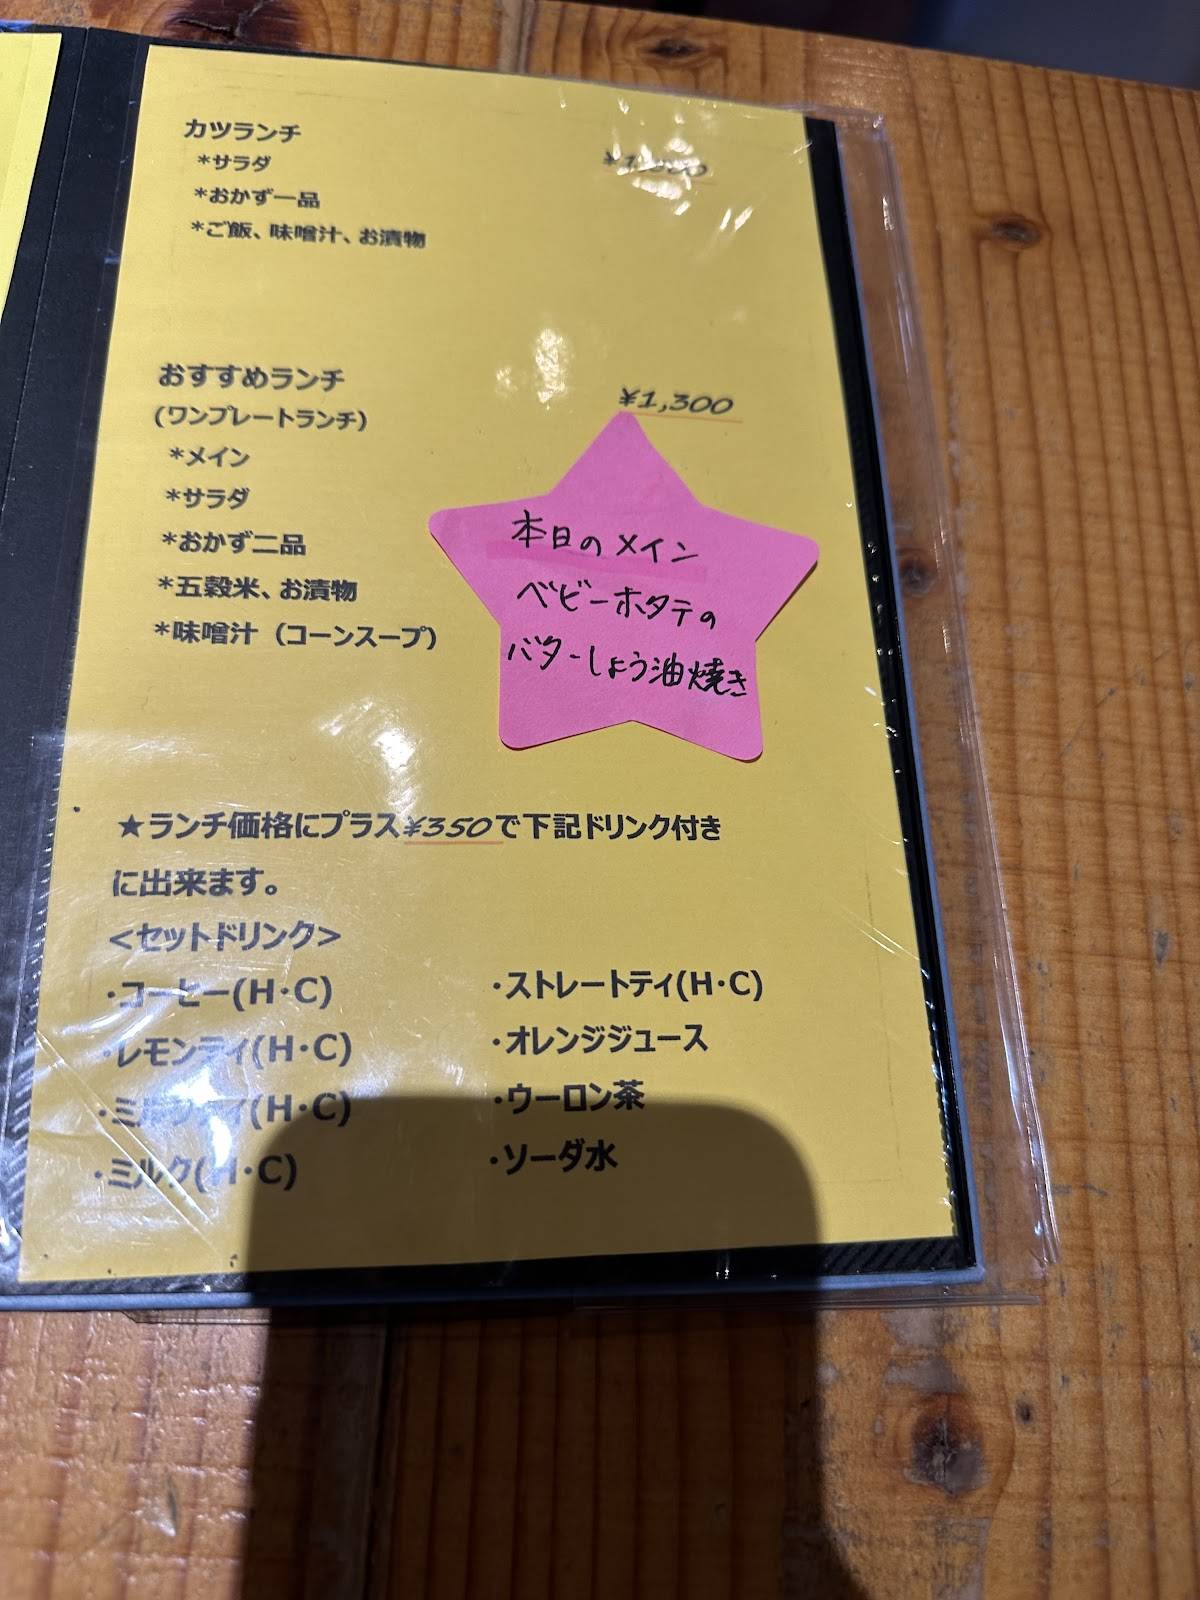 カツランチ
*サラダ
*おかず一品
*ご飯、味噌汁、お漬物
おすすめランチ
¥1,300
(ワンプレートランチ)
*メイン
*サラダ
*おかず二品
*五穀米、お漬物
*味噌汁（コーンスープ）
本日のメイン
ベビーホタテの
バターしょう油焼き
★ランチ価格にプラス¥350で下記ドリンク付き
に出来ます。
<セットドリンク>
・コーヒー(H・C)
・レモンティ(H・C)
・ミルクティ(H・C)
・ミルク(H・C)
・ストレートティ(H・C)
・オレンジジュース
・ウーロン茶
・ソーダ水